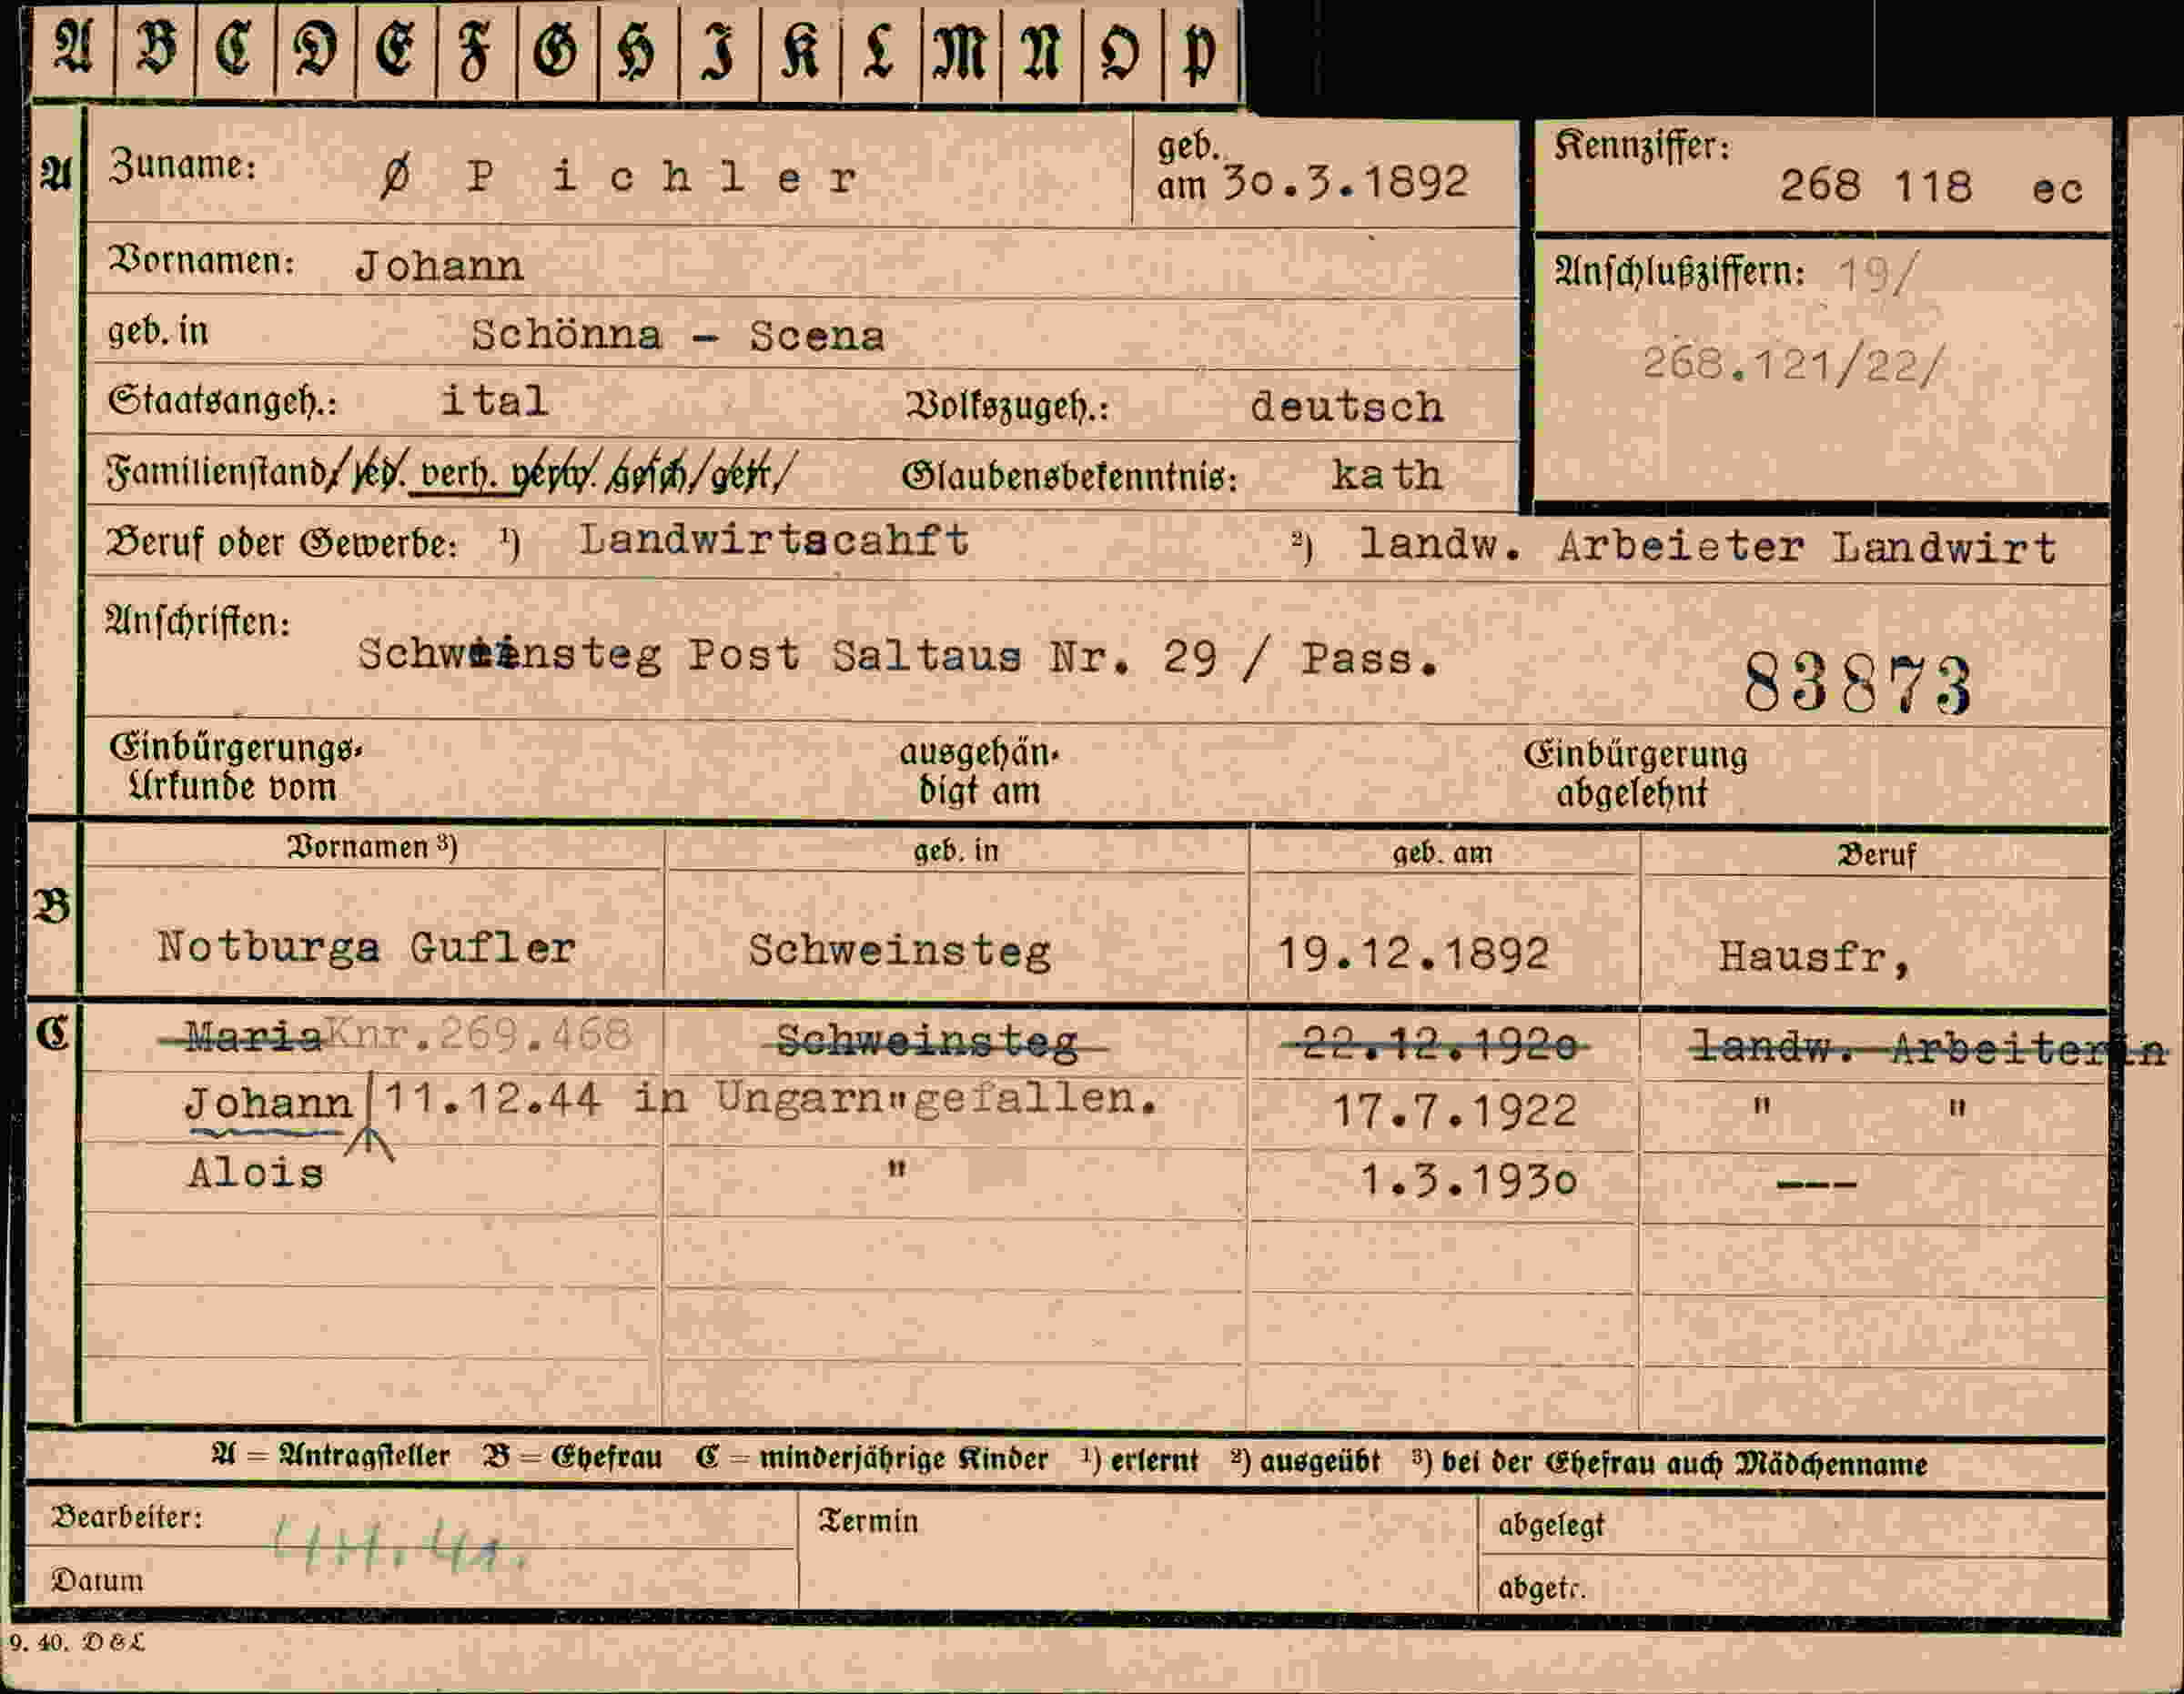 A B C D E F G H I K L M N O P
A Zuname: Ø Pichler geb. am 30.3.1892 Kennziffer: 268 118 ec
Vornamen: Johann Anschlußziffern: 19/
geb. in Schönna - Scena 268.121/22/
Staatsangeh.: ital Volkszugeh.: deutsch
Familienstand/ led. verh. verw. gesch/ getr/ Glaubensbekenntnis: kath
Beruf oder Gewerbe: ¹) Landwirtscahft ²) landw. Arbeieter Landwirt
Anschriften: Schweinsteg Post Saltaus Nr. 29 / Pass. 83873
Einbürgerungs- ausgehän- Einbürgerung
Urkunde vom digt am abgelehnt
Vornamen ³) geb. in geb. am Beruf
B Notburga Gufler Schweinsteg 19.12.1892 Hausfr,
C Maria Knr.269.468 Schweinsteg 22.12.192o landw. Arbeiterin
Johann 11.12.44 in Ungarn " gefallen. 17.7.1922 " "
Alois " 1.3.193o ---
A = Antragsteller B = Ehefrau C = minderjährige Kinder ¹) erlernt ²) ausgeübt ³) bei der Ehefrau auch Mädchenname
Bearbeiter: Termin abgelegt
Datum abgetr.
9. 40. D & L